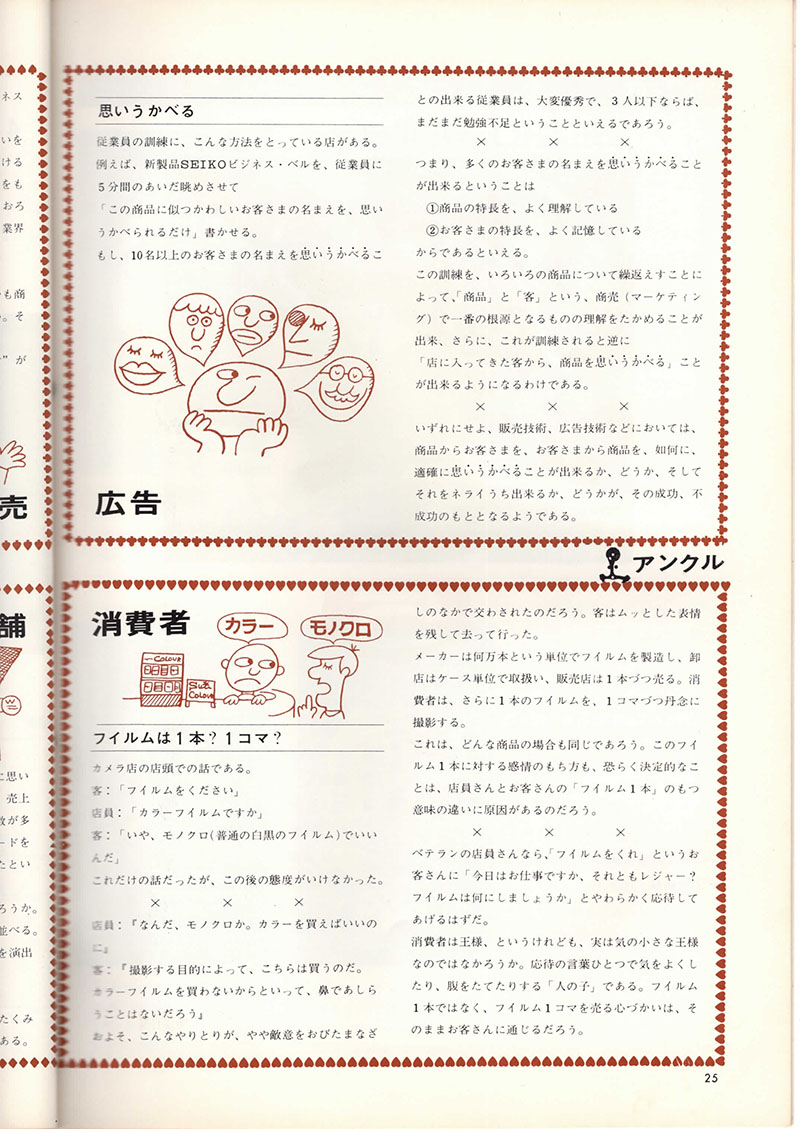 ネス
いを
ける
をも
おろ
業界
も商
。そ
”が
売
思いうかべる
従業員の訓練に、こんな方法をとっている店がある。
例えば、新製品SEIKOビジネス・ベルを、従業員に
5分間のあいだ眺めさせて
「この商品に似つかわしいお客さまの名まえを、思い
うかべられるだけ」書かせる。
もし、10名以上のお客さまの名まえを思いうかべるこ
広告
との出来る従業員は、大変優秀で、3人以下ならば、
まだまだ勉強不足ということといえるであろう。
× × ×
つまり、多くのお客さまの名まえを思いうかべること
が出来るということは
①商品の特長を、よく理解している
②お客さまの特長を、よく記憶している
からであるといえる。
この訓練を、いろいろの商品について繰返えすことに
よって、「商品」と「客」という、商売(マーケティン
グ)で一番の根源となるものの理解をたかめることが
出来、さらに、これが訓練されると逆に
「店に入ってきた客から、商品を思いうかべる」こと
が出来るようになるわけである。
× × ×
いずれにせよ、販売技術、広告技術などにおいては、
商品からお客さまを、お客さまから商品を、如何に、
適確に思いうかべることが出来るか、どうか、そして
それをネライうち出来るか、どうかが、その成功、不
成功のもととなるようである。
アンクル
舗
に思い
売上
数が多
ードを
たとい
ろうか。
並べる。
を演出
たくみ
ある。
消費者
カラー
モノクロ
COLOUR
Sub
COLOUR
フイルムは1本?1コマ?
カメラ店の店頭での話である。
客:「フイルムをください」
店員:「カラーフイルムですか」
客:「いや、モノクロ(普通の白黒のフイルム)でいい
んだ」
これだけの話だったが、この後の態度がいけなかった。
× × ×
店員:『なんだ、モノクロか。カラーを買えばいいの
に』
客:『撮影する目的によって、こちらは買うのだ。
カラーフイルムを買わないからといって、鼻であしら
うことはないだろう』
およそ、こんなやりとりが、やや敵意をおびたまなざ
しのなかで交わされたのだろう。客はムッとした表情
を残して去って行った。
メーカーは何万本という単位でフイルムを製造し、卸
店はケース単位で取扱い、販売店は1本づつ売る。消
費者は、さらに1本のフイルムを、1コマづつ丹念に
撮影する。
これは、どんな商品の場合も同じであろう。このフイ
ルム1本に対する感情のもち方も、恐らく決定的なこ
とは、店員さんとお客さんの「フイルム1本」のもつ
意味の違いに原因があるのだろう。
× × ×
ベテランの店員さんなら、「フイルムをくれ」というお
客さんに「今日はお仕事ですか、それともレジャー?
フイルムは何にしましょうか」とやわらかく応待して
あげるはずだ。
消費者は王様、というけれども、実は気の小さな王様
なのではなかろうか。応待の言葉ひとつで気をよくし
たり、腹をたてたりする「人の子」である。フイルム
1本ではなく、フイルム1コマを売る心づかいは、そ
のままお客さんに通じるだろう。
25